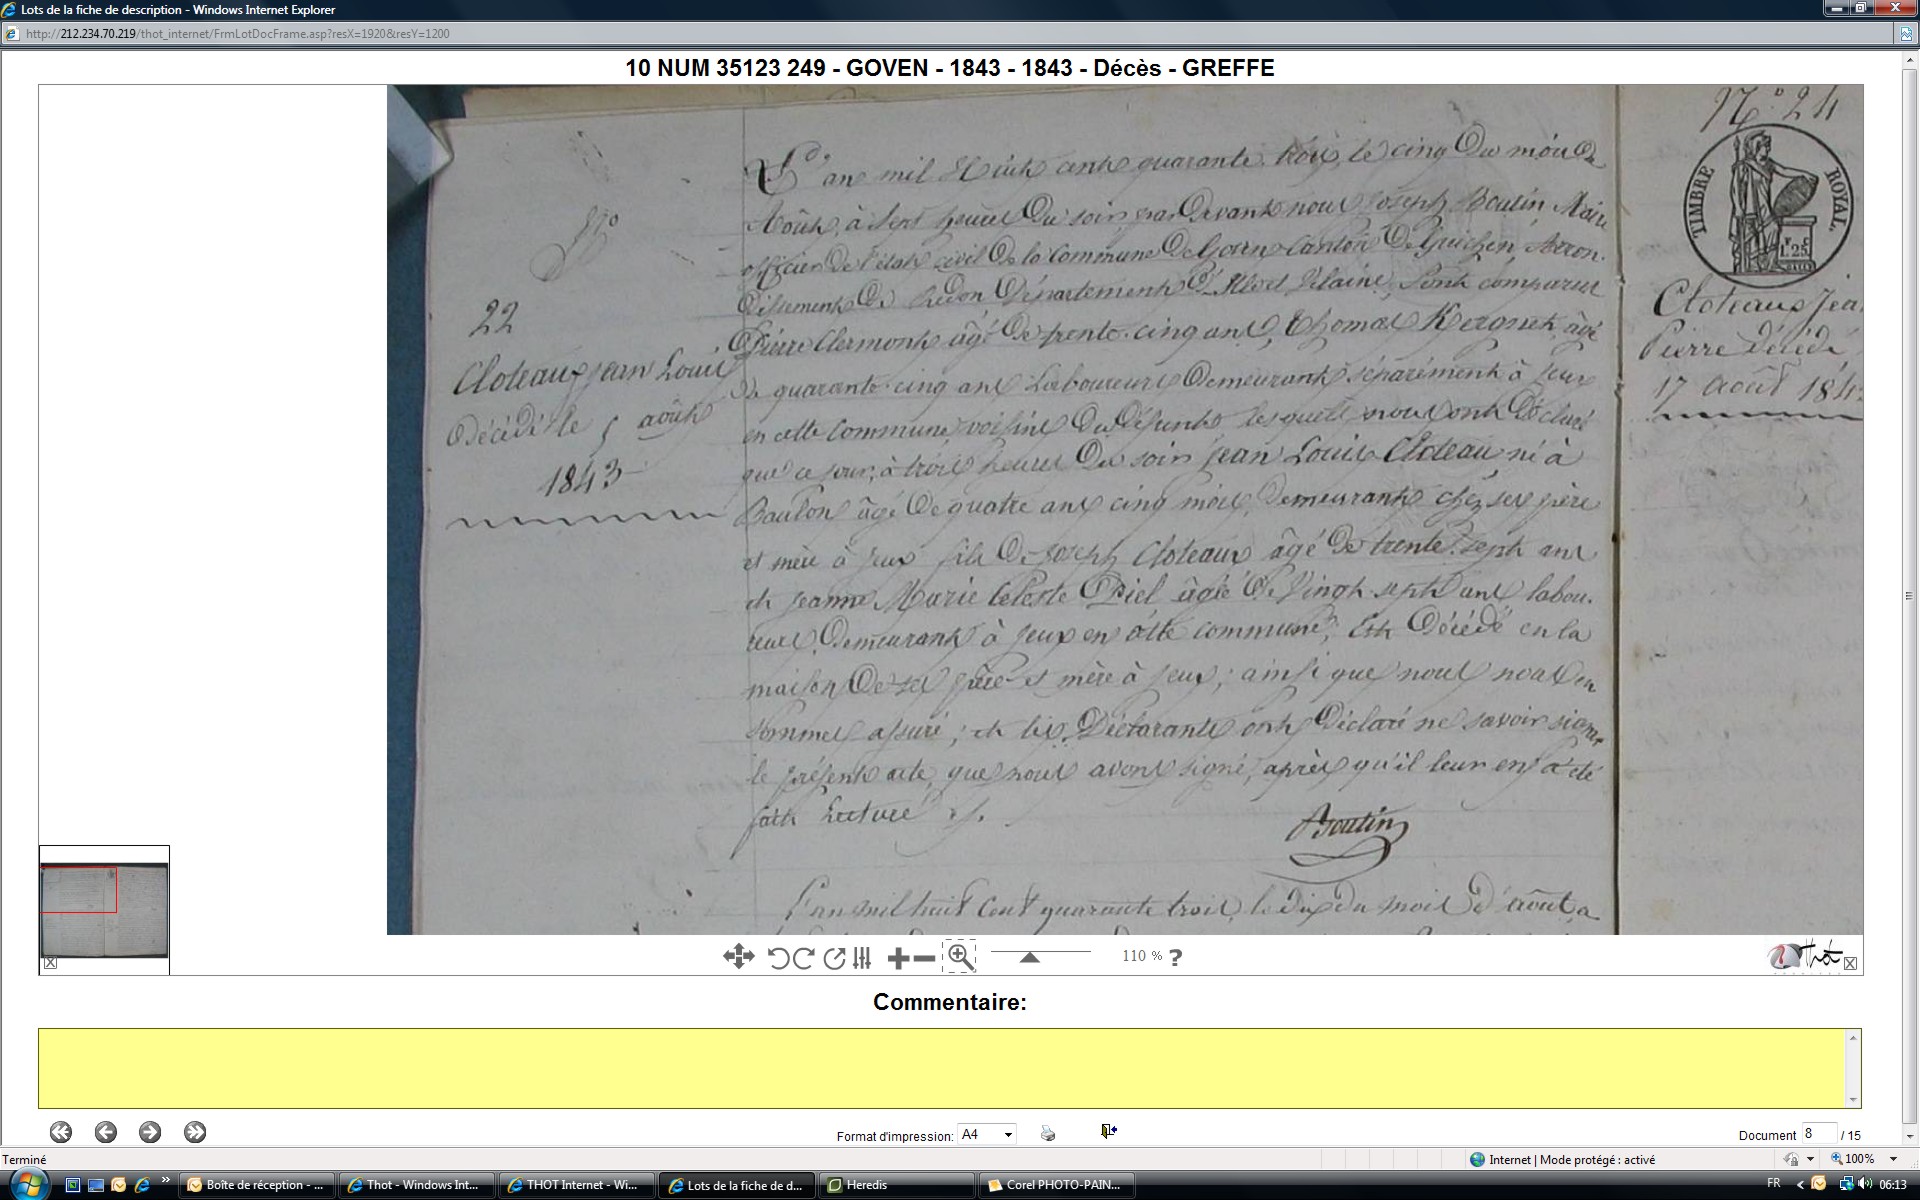 Lots de la fiche de description - Windows Internet Explorer
http://212.234.70.219/thot_internet/FrmLotDocFrame.asp?resX=1920&resY=1200
10 NUM 35123 249 - GOVEN - 1843 - 1843 - Décès - GREFFE
N° 24
TIMBRE ROYAL
L'an mil huit cent quarante trois, le cinq du mois de
Août, à sept heures du soir par devant nous Joseph Boutin Maire
officier de l'état civil de la Commune de Goven Canton de Guichen, Arron-
dissement de Redon Département d'Ille et Vilaine, sont comparus
Pierre Clermont âgé de trente-cinq ans, Thomas âgé
de quarante-cinq ans Laboureurs demeurant séparément à Feux
en cette commune, voisins du défunt lesquels nous ont déclaré
que ce jour, à trois heures du soir Jean Louis Cloteau, né à
Baulon âgé de quatre ans cinq mois, demeurant chez ses père
et mère à Feux fils de Joseph Cloteaux âgé de trente-sept ans
et Jeanne Marie Celeste Piel âgée de Vingt-sept ans labou-
reurs, demeurant à Feux en cette commune, Est Décédé en la
maison de ses père et mère à Feux; ainsi que nous nous en
sommes assuré; et les Déclarants ont Déclaré ne savoir signer
le présent acte, que nous avons signé, après qu'il leur en a été
fait Lecture
Boutin
L'an mil huit cent quarante trois, le dix du mois d'août, a
N°
22
Cloteaux Jean Louis
Décédé le 5 août
1843
Cloteaux Jea
Pierre Décédé
17 août 184
110 % ?
Thot
Commentaire:
Format d'impression: A4
Document 8 / 15
Terminé
Internet | Mode protégé : activé
100%
Boîte de réception - ...
Thot - Windows Int...
THOT Internet - Wi...
Lots de la fiche de d...
Heredis
Corel PHOTO-PAIN...
FR
06:13